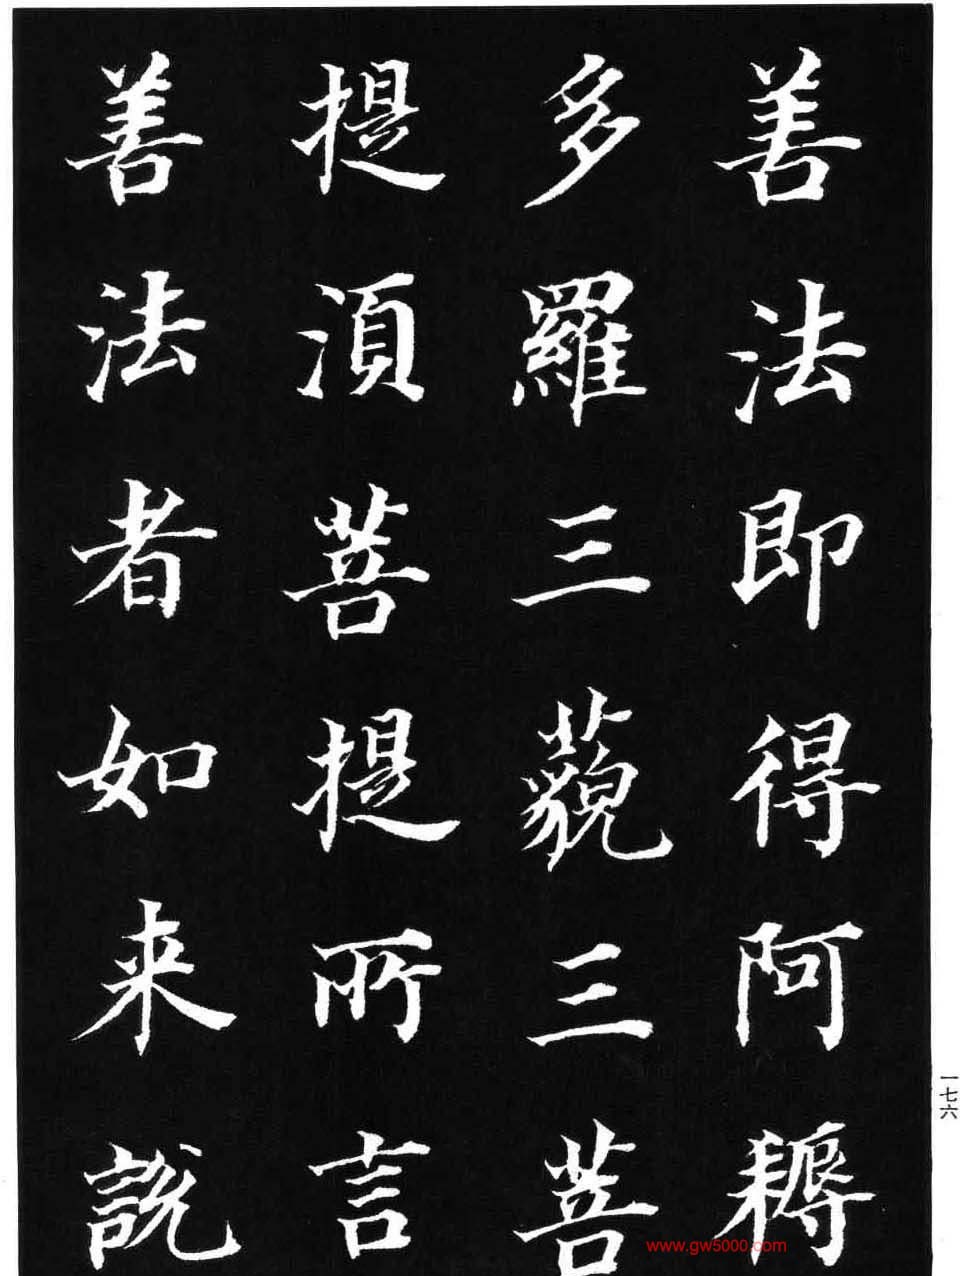 善法即得阿耨
多羅三藐三菩
提湏菩提所言
善法者如来說
一七六
www.gw5000.com